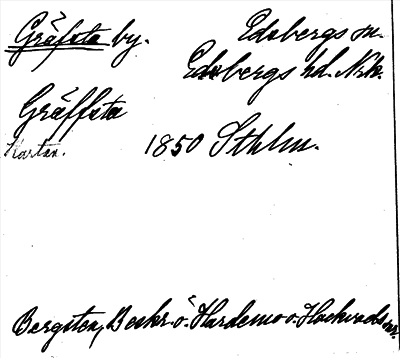 Gräfsta by. Edsbergs sn.
Edsbergs hd. Nrk.
Gräffsta
Kartan. 1850 Sthlm.
Bergsten, Beskr. ö. Hardemo o. Hackvads snr.